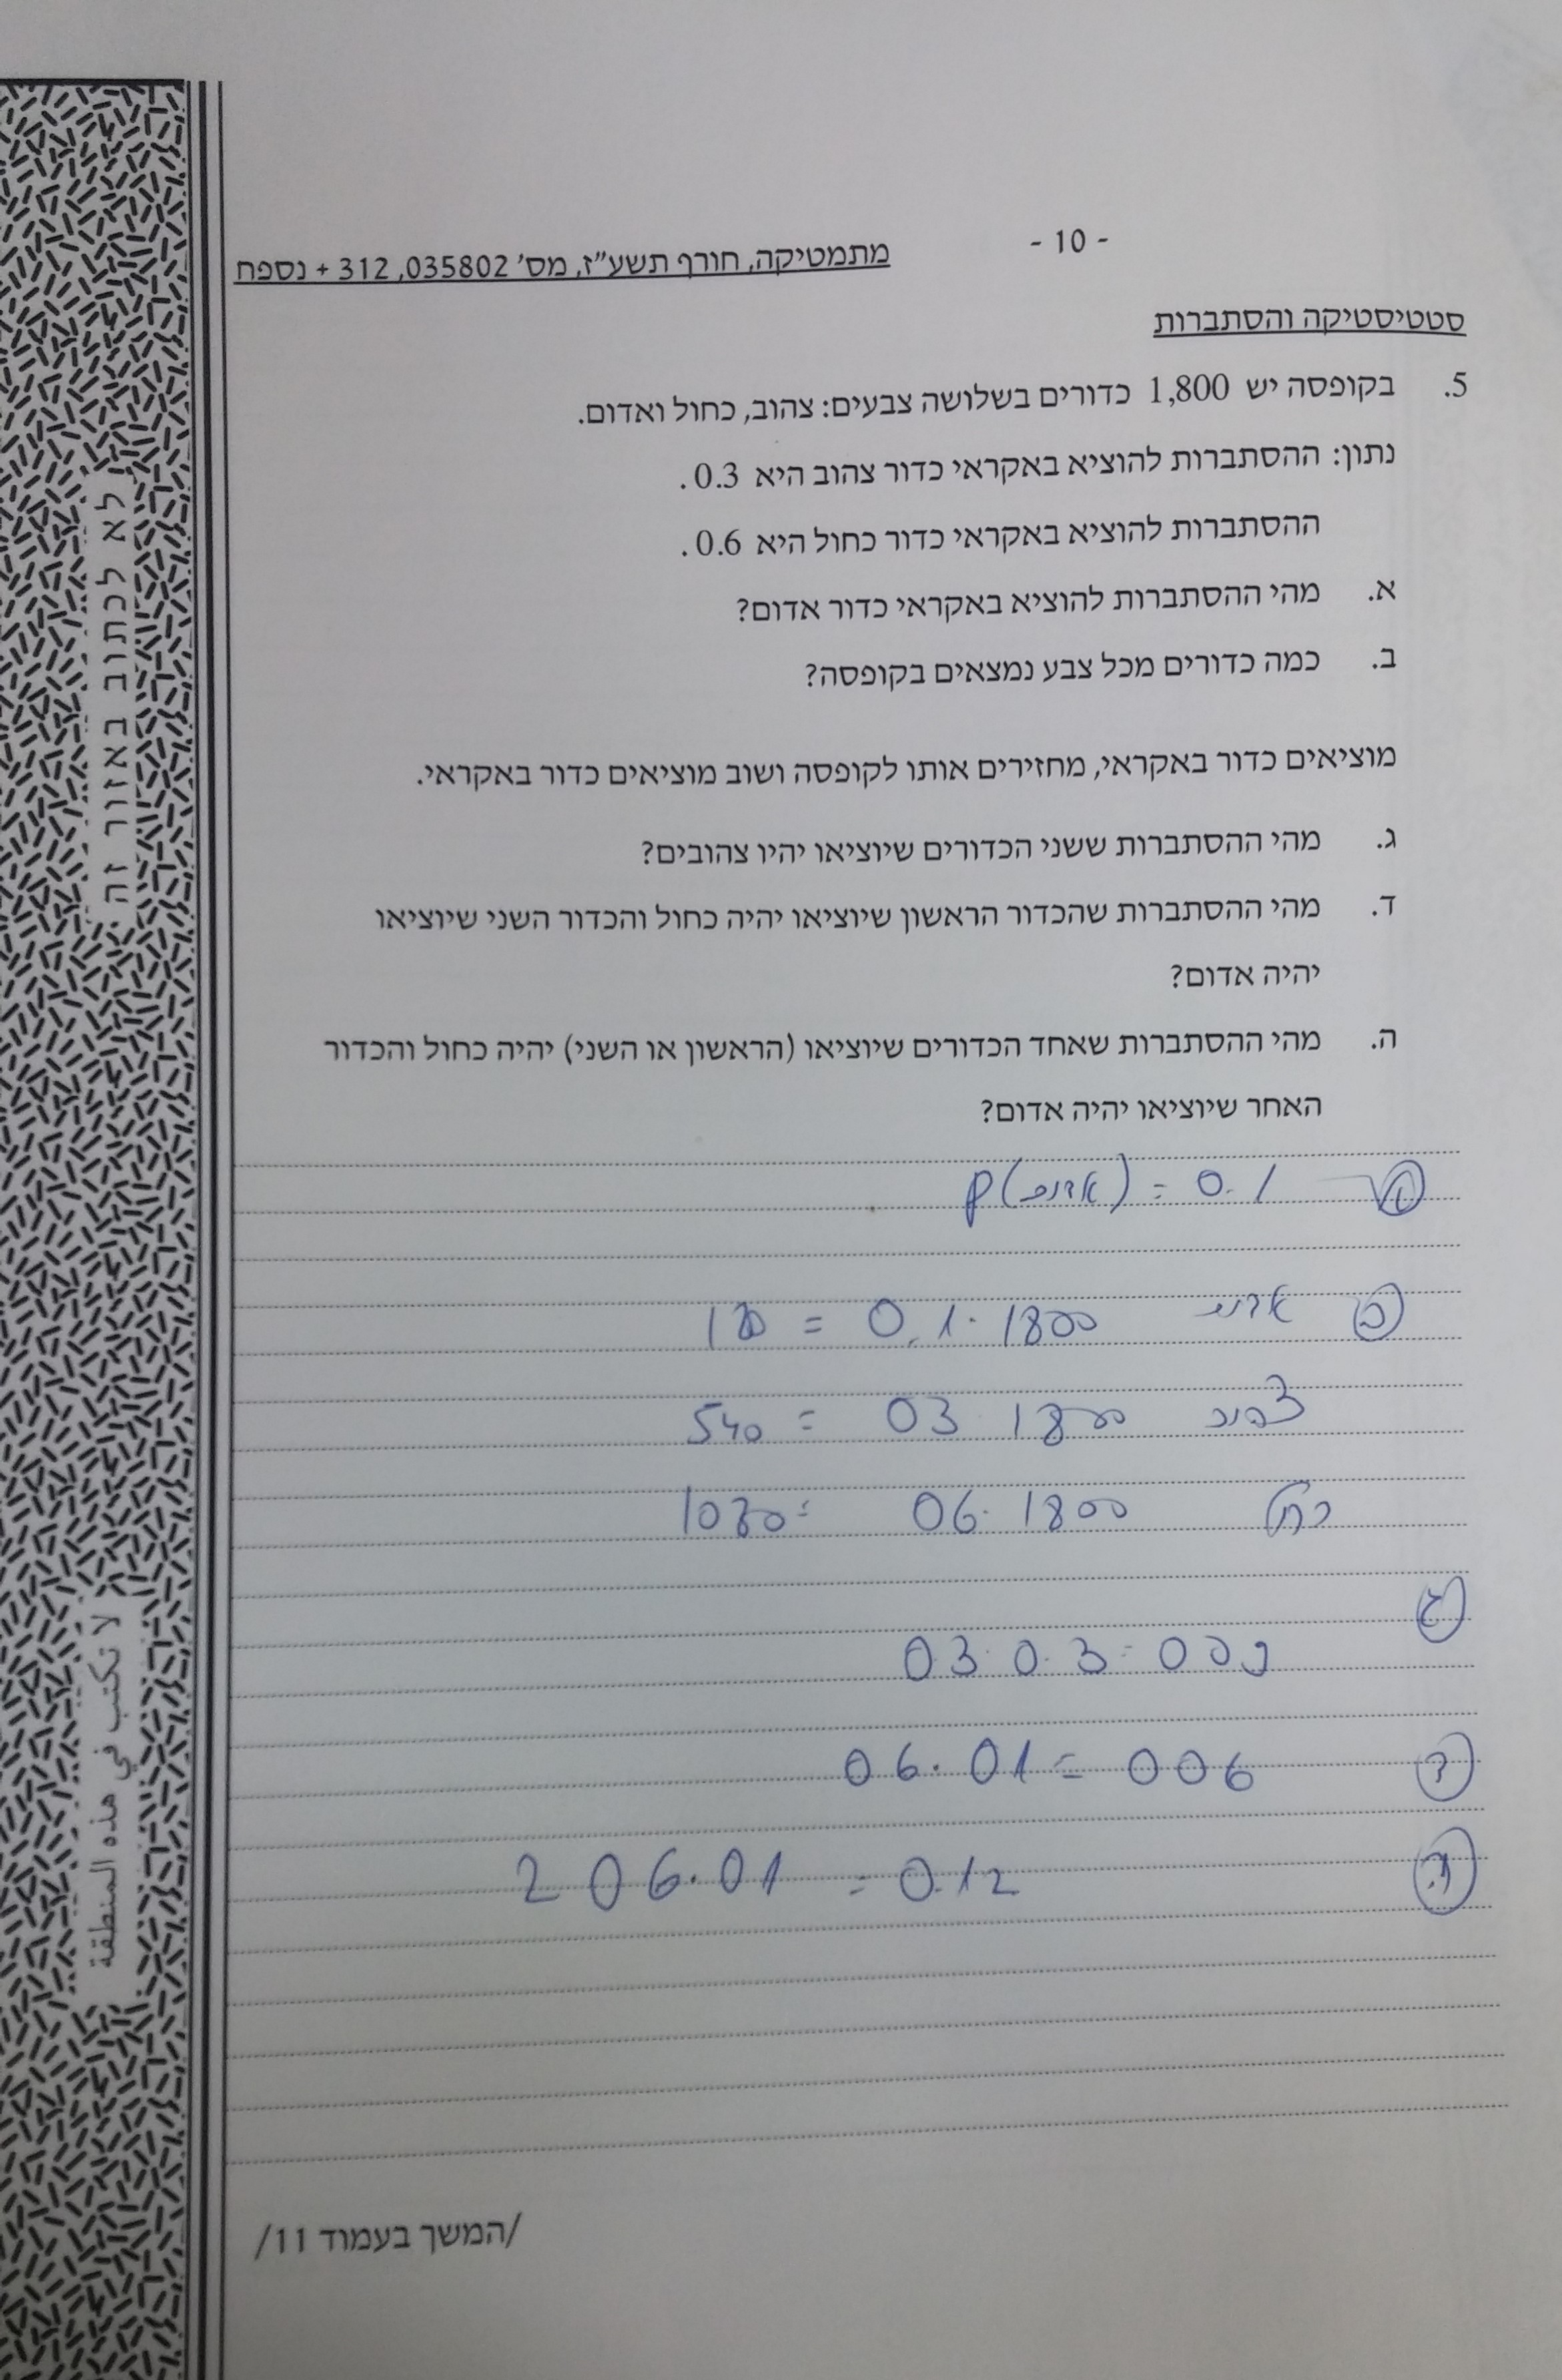 - 10 -
מתמטיקה, חורף תשע"ז, מס' 035802, 312 + נספח
סטטיסטיקה והסתברות
5. בקופסה יש 1,800 כדורים בשלושה צבעים: צהוב, כחול ואדום.
נתון: ההסתברות להוציא באקראי כדור צהוב היא 0.3 .
ההסתברות להוציא באקראי כדור כחול היא 0.6 .
א. מהי ההסתברות להוציא באקראי כדור אדום?
ב. כמה כדורים מכל צבע נמצאים בקופסה?
מוציאים כדור באקראי, מחזירים אותו לקופסה ושוב מוציאים כדור באקראי.
ג. מהי ההסתברות ששני הכדורים שיוציאו יהיו צהובים?
ד. מהי ההסתברות שהכדור הראשון שיוציאו יהיה כחול והכדור השני שיוציאו
יהיה אדום?
ה. מהי ההסתברות שאחד הכדורים שיוציאו (הראשון או השני) יהיה כחול והכדור
האחר שיוציאו יהיה אדום?
א P(אדום) = 0.1
ב אדום 180 = 0.1 · 1800
צהוב 540 = 03 1800
כחול 1080 = 06 · 1800
ג
03 0.3 = 009
ד 06 · 01 = 006
ה 2 06 · 01 = 0.12
/המשך בעמוד 11/
לא לכתוב באזור זה
لا تكتب في هذه المنطقة